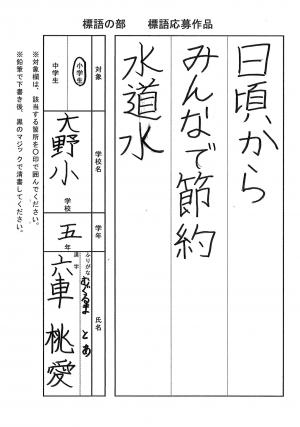 標語の部　標語応募作品
日頃から
みんなで節約
水道水
対象
小学生
中学生
学校名
大野小
学校
学年
五年
ふりがな
むぐるま とあ
漢字
氏名
六車 桃愛
※対象欄は、該当する箇所を〇印で囲んでください。
※鉛筆で下書き後、黒のマジックで清書してください。